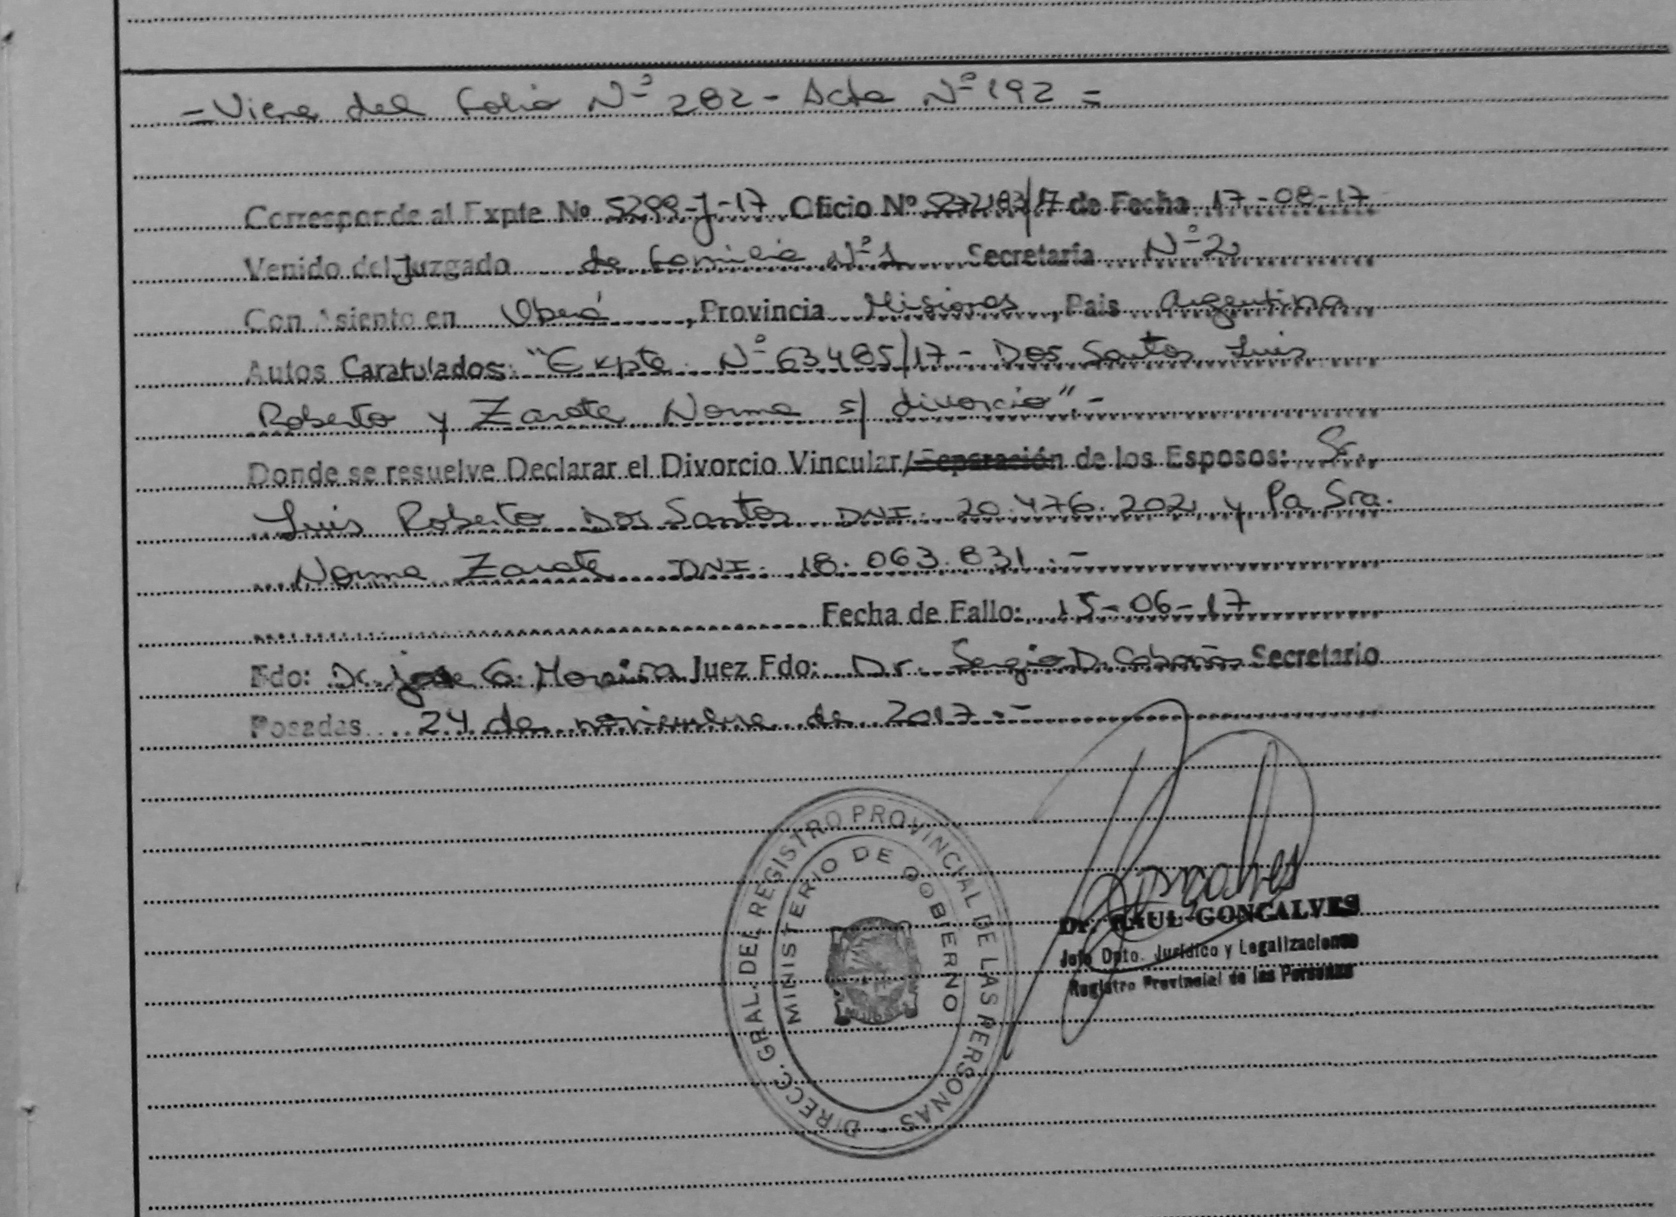 = Viene del folio Nº 282 - Acta Nº 192 =
Corresponde al Expte Nº 5299-J-17 Oficio Nº /17 de Fecha 17-08-17
Venido del Juzgado de familia Nº 1 Secretaría Nº 2
Con Asiento en Oberá, Provincia Misiones, Pais Argentina
Autos Caratulados: "Expte Nº 63485/17 - Dos Santos Luis
Roberto y Zarate Norma s/ divorcio" -
Donde se resuelve Declarar el Divorcio Vincular/Separación de los Esposos: Sr
Luis Roberto Dos Santos DNI. 20.476.202 y la Sra.
Norma Zarate DNI. 18.063.831.-
Fecha de Fallo: 15-06-17
Fdo: Dr. Jose G. Moreira Juez Fdo: Dr. Sergio D. Secretario
Posadas 24 de noviembre de 2017.-
DIRECC. GRAL. DEL REGISTRO PROVINCIAL DE LAS PERSONAS -
MINISTERIO DE GOBIERNO
Goncalves
Dr. RAUL GONCALVES
Jefe Dpto. Jurídico y Legalizaciones
Registro Provincial de las Personas